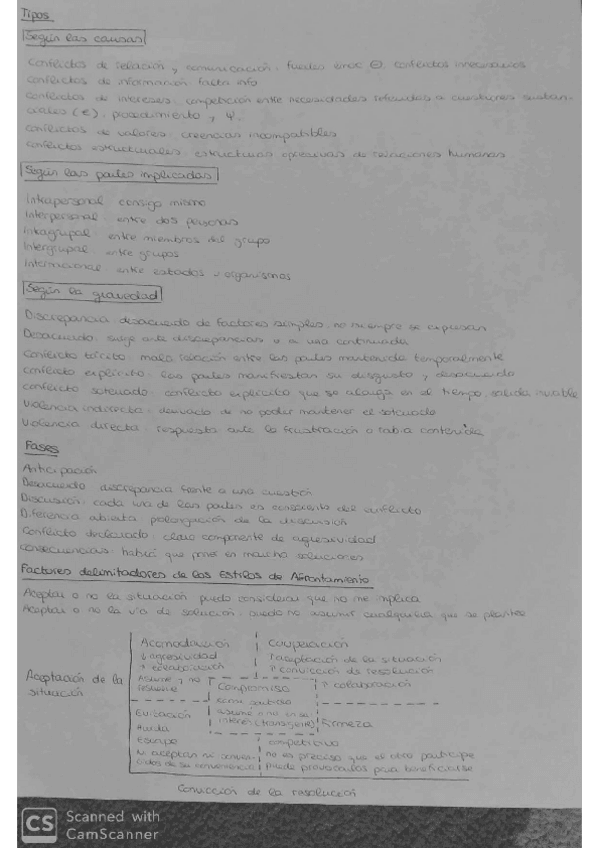 Tipos
Según las causas
Conflictos de relación y comunicación: fuertes emoc ⊖, conflictos innecesarios
Conflictos de información: falta info
Conflictos de intereses: competición entre necesidades referidas a cuestiones sustan-
ciales (€), procedimiento y Ψ.
Conflictos de valores: creencias incompatibles
Conflictos estructurales: estructuras opresivas de relaciones humanas
Según las partes implicadas
Intrapersonal: consigo mismo
Interpersonal: entre dos personas
Intragrupal: entre miembros del grupo
Intergrupal: entre grupos
Internacional: entre estados u organismos
Según la gravedad
Discrepancia: desacuerdo de factores simples, no siempre se expresan
Desacuerdo: surge ante discrepancias o a una continuada
Conflicto tácito: mala relación entre las partes mantenida temporalmente
Conflicto explícito: las partes manifiestan su disgusto y desacuerdo
Conflicto soterrado: conflicto explícito que se alarga en el tiempo, salida inviable
Violencia indirecta: derivado de no poder mantener el soterrado
Violencia directa: respuesta ante la frustración o rabia contenida
Fases
Anticipación
Desacuerdo: discrepancia frente a una cuestión
Discusión: cada una de las partes es consciente del conflicto
Diferencia abierta: prolongación de la discusión
Conflicto declarado: claro componente de agresividad
Consecuencias: habrá que poner en marcha soluciones
Factores delimitadores de los Estilos de Afrontamiento
Aceptar o no la situación: puedo considerar que no me implica
Aceptar o no la vía de solución: puedo no asumir cualquiera que se plantee
Aceptación de la
situación
Acomodación
↓ agresividad
↑ colaboración
Asume y no
resuelve
Cooperación
↑ aceptación de la situación
↑ convicción de resolución
↑ colaboración
Compromiso
Evitación
Huida
Escape
Ni aceptan ni
de su conveniencia
Firmeza
Competitivo
no es preciso que el otro participe
puede provocarlos para beneficiarse
Convicción de la resolución
CS Scanned with
CamScanner